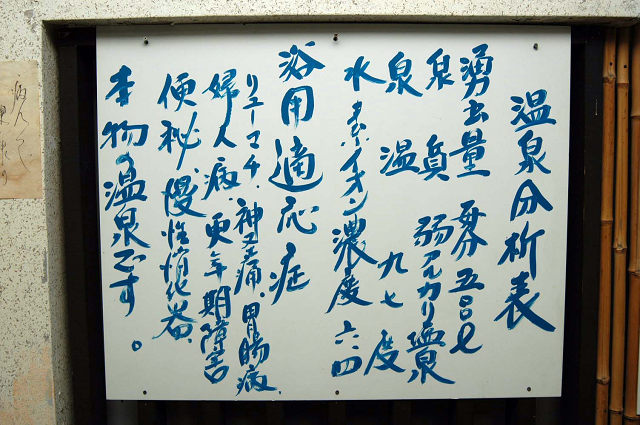 温泉分析表
湧出量 毎分 五〇〇ℓ
泉質 弱アルカリ塩泉
泉温 九七度
水素イオン濃度 六・四
浴用適応症
リューマチ、神経痛、胃腸病、
婦人病、更年期障害
便秘、慢性消化器、
本物の温泉です。